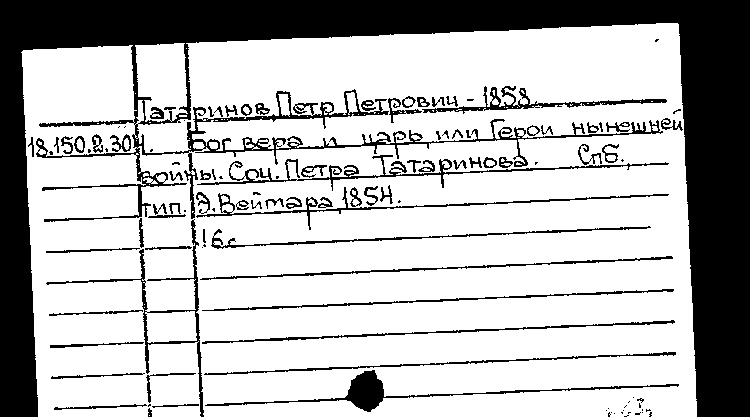 Татаринов, Петр Петрович, - 1858.
18.150.2.304. Бог, вера и царь, или Герои нынешней
войны. Соч. Петра Татаринова. Спб.,
тип. Э. Веймара, 1854.
16 с